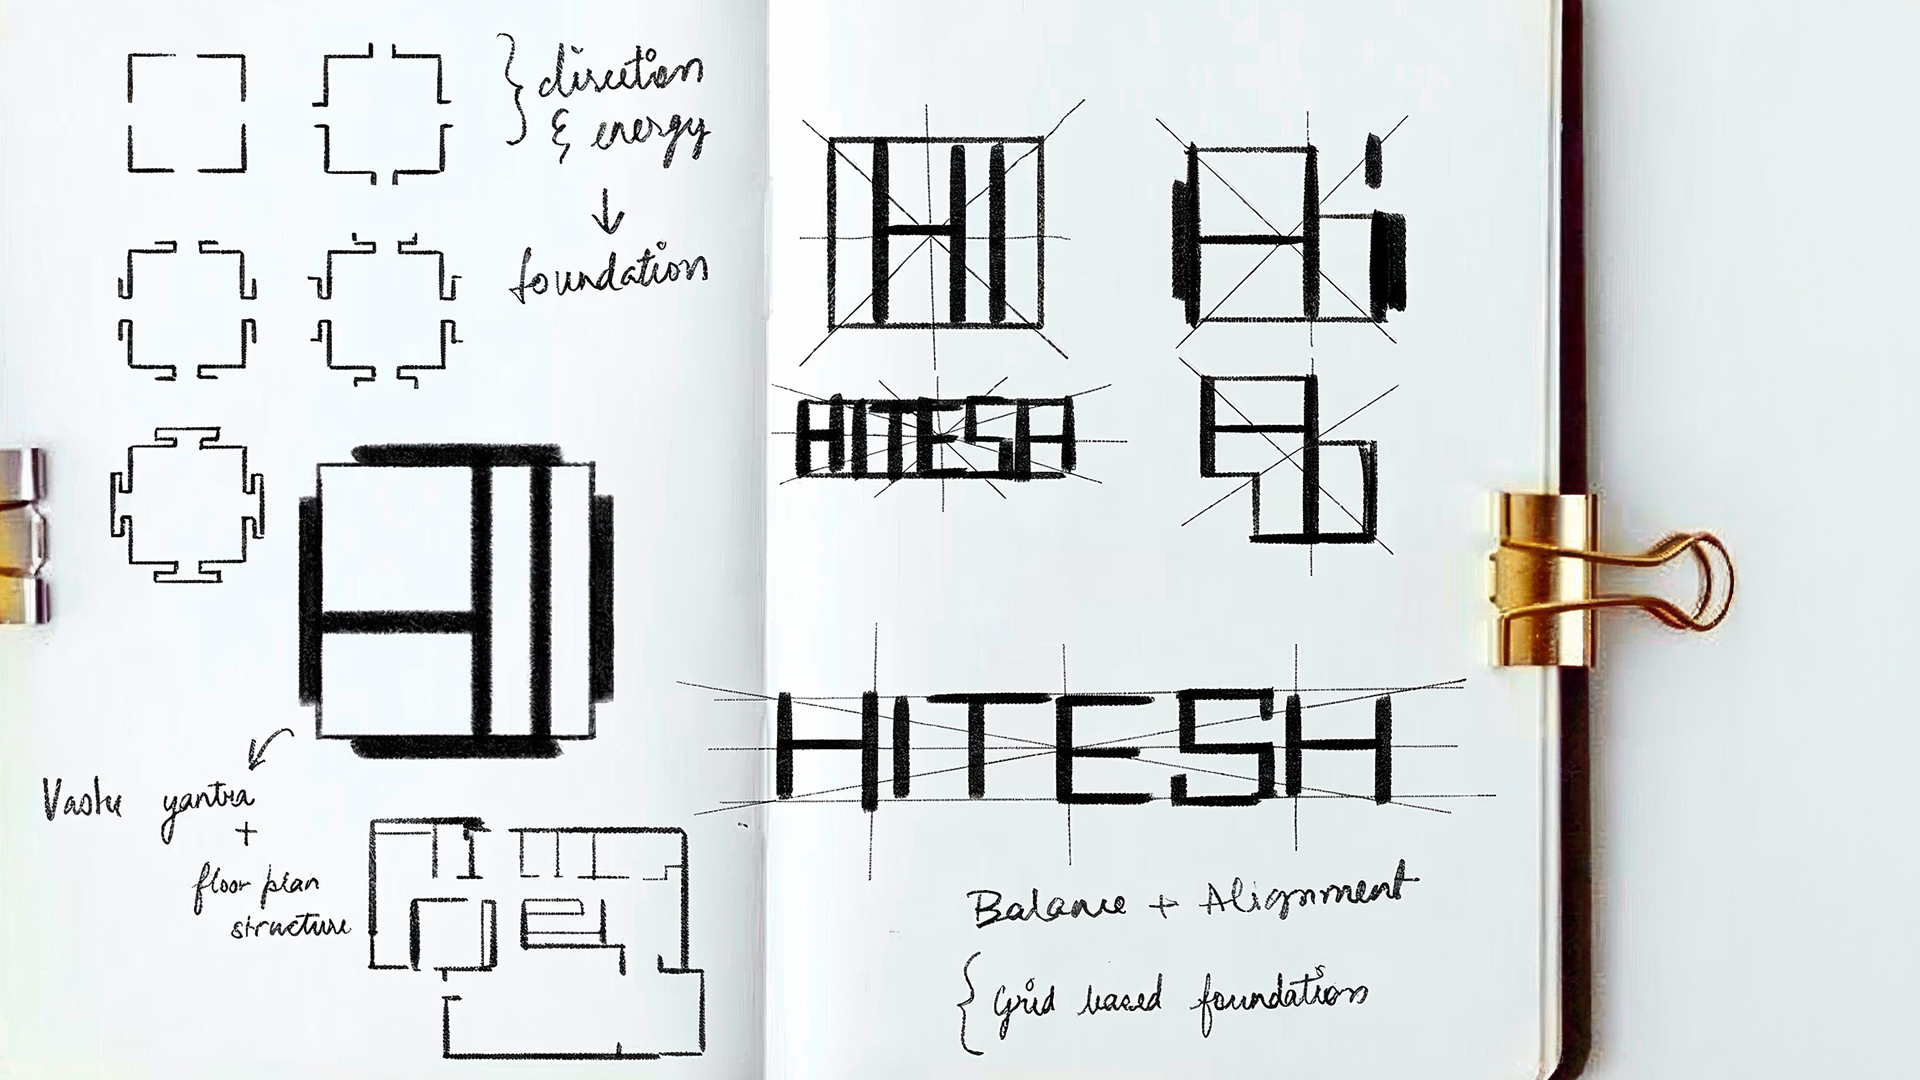 direction
& energy
↓
foundation
Vastu yantra
+
floor plan
structure
HI
Hi
HITESH
HITESH
Balance + Alignment
Grid based foundation